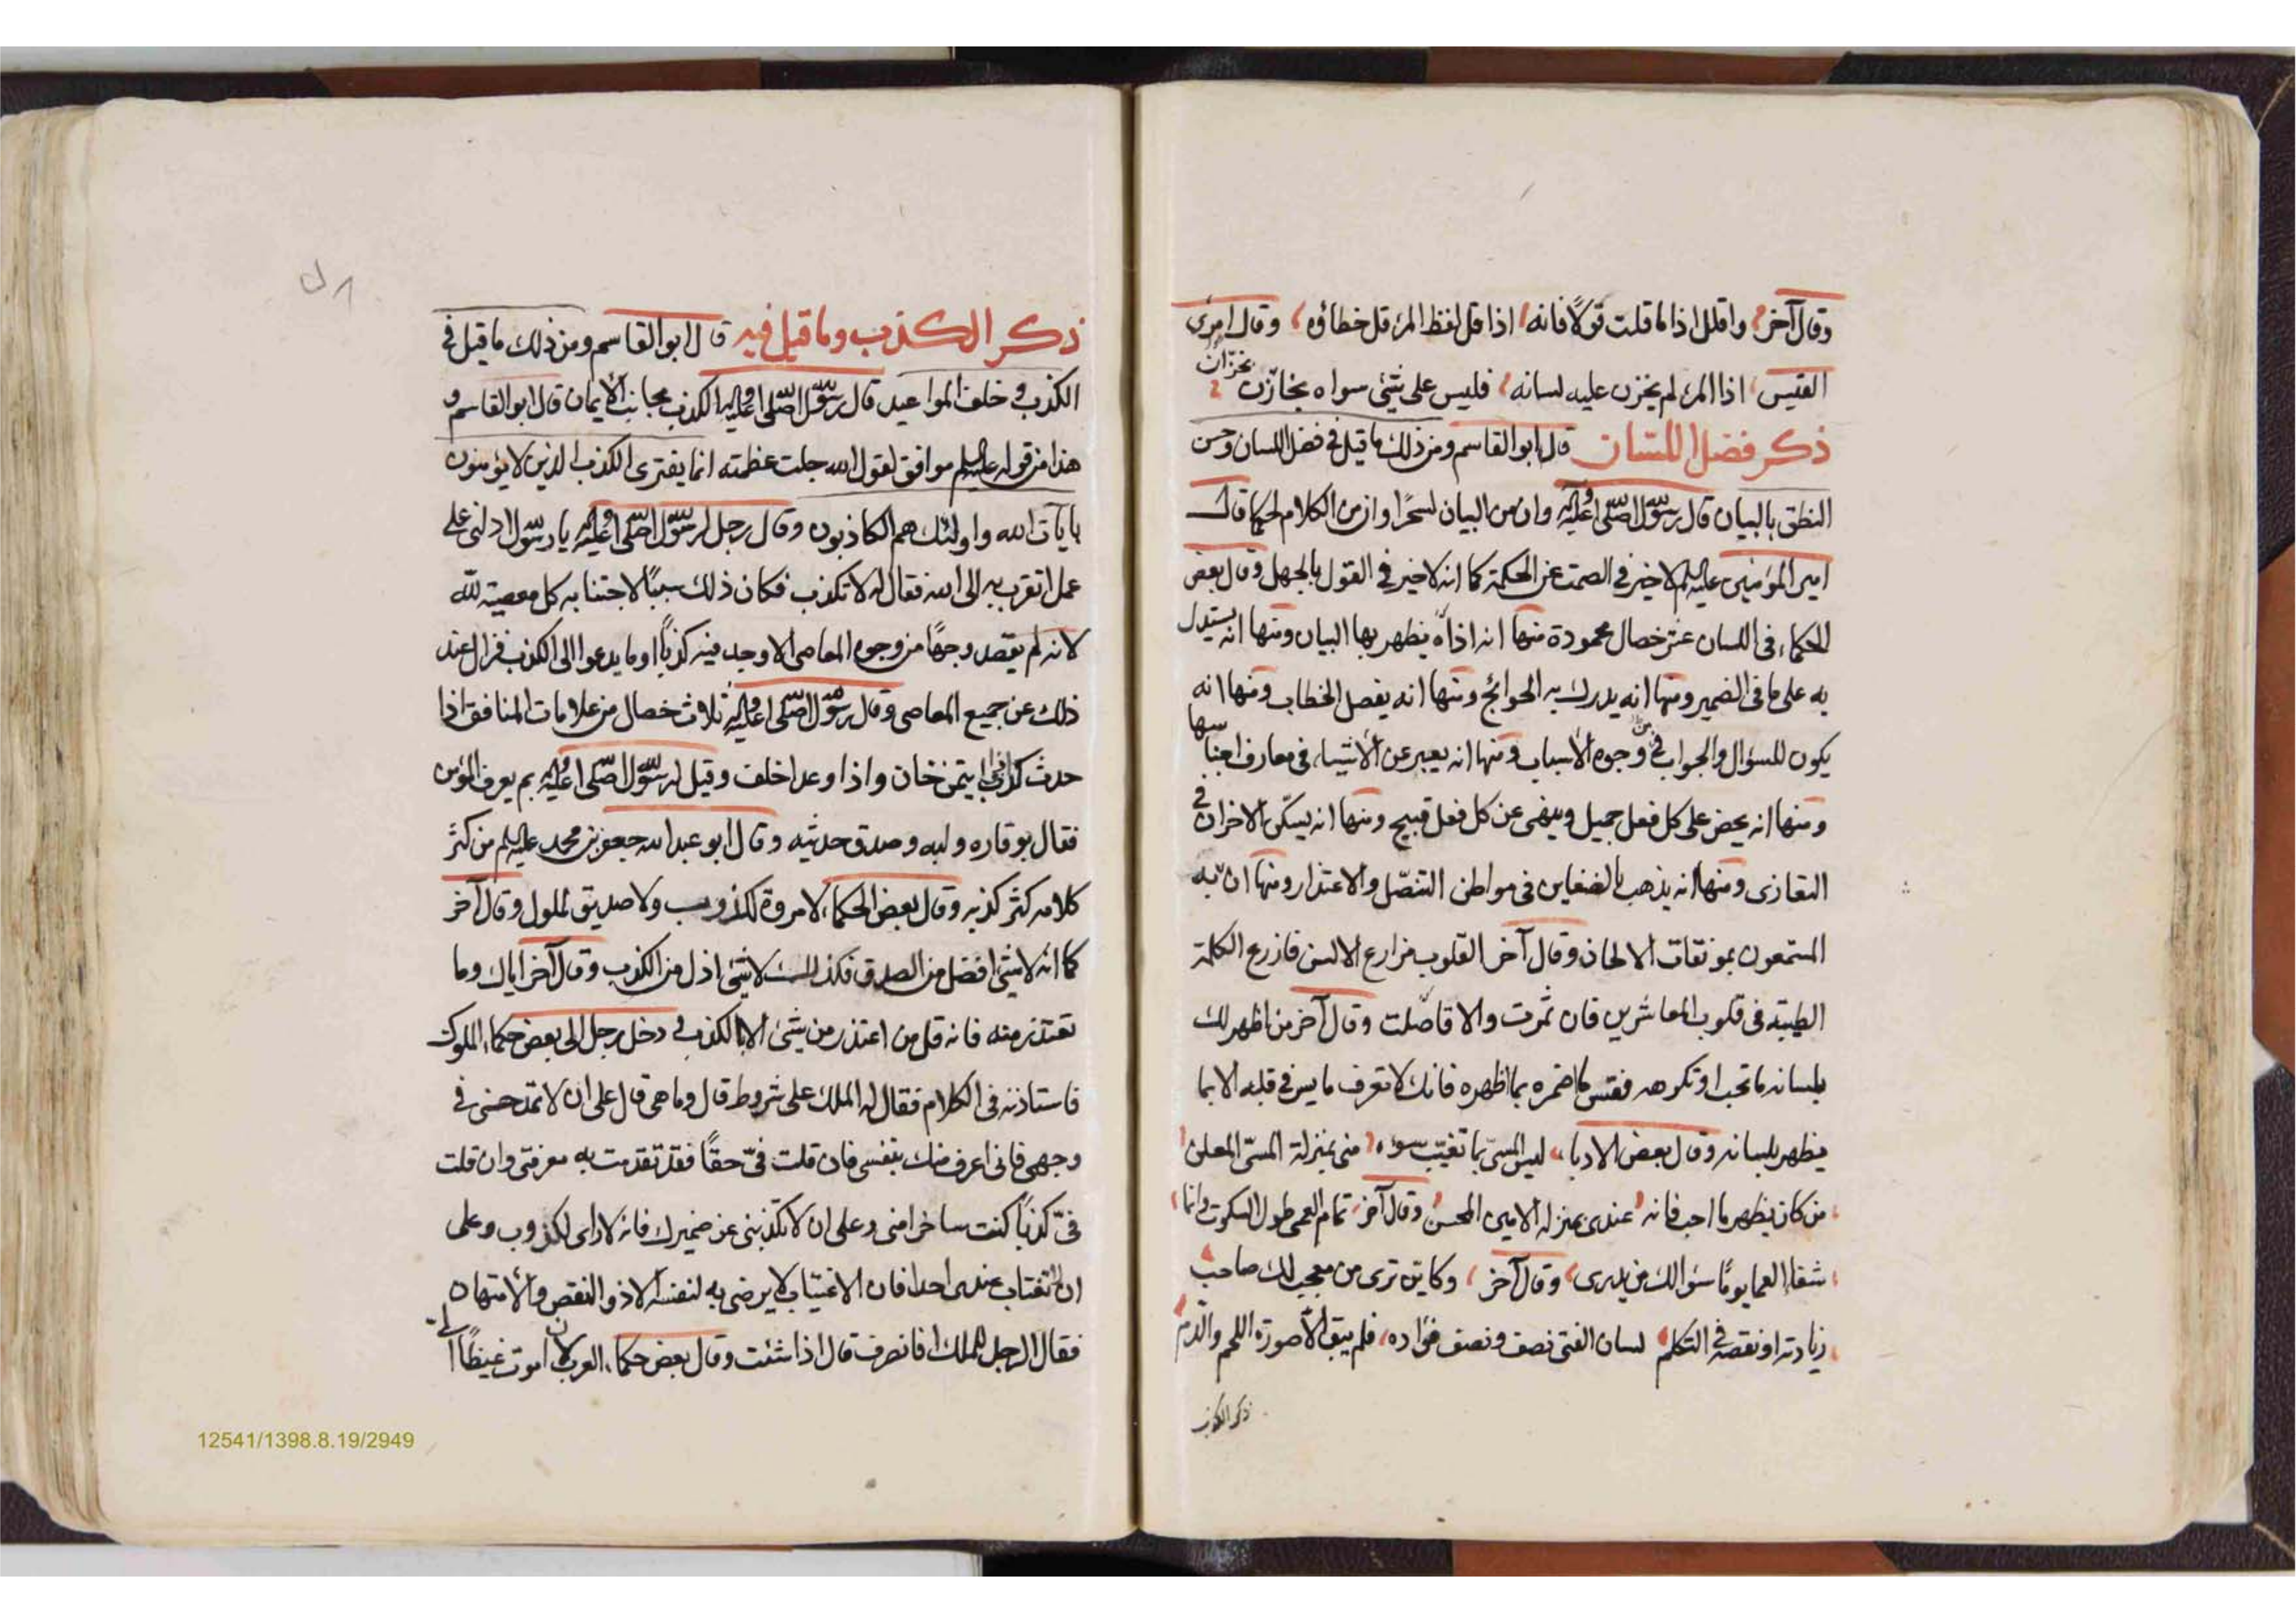 وقال آخر واقلل اذا ما قلت قولًا فانه اذا قل لفظ المرء قل خطاؤه وقال امرئ
القيس اذا المرء لم يخزن عليه لسانه فليس على شئ سواه بخازن بخزّان
ذكر فضل اللسان قال ابوالقاسم ومن ذلك ما قيل في فضل اللسان وحسن
النطق بالبيان قال رسول الله صلى الله عليه وآله وان من البيان لسحرًا وان من الكلام لحكما قال
امير المؤمنين عليه السلم لا خير في الصمت عن الحكمة كما انه لا خير في القول بالجهل وقال بعض
الحكماء في اللسان عشر خصال محمودة منها انه اداة يظهر بها البيان ومنها انه يستدل
به على ما في الضمير ومنها انه يدرك به الحوائج ومنها انه يفصل الخطاب ومنها انه
يكون للسؤال والجواب في وجوه الأسباب ومنها انه يعبر عن الأشياء في معارف اجناسها
ومنها انه يحض على كل فعل جميل وينهى عن كل فعل قبيح ومنها انه يسكّن الاحزان في
التعازى ومنها انه يذهب بالضغاين في مواطن التنصّل والاعتذار ومنها ان به
المستمعون بمونقات الالحان وقال آخر القلوب مزارع الالسن فازرع الكلمة
الطيبة في قلوب المعاشرين فان ثمرت والا قاصّلت وقال آخر من اظهر لك
بلسانه ما تحب او تكرهه فقس ما اضمره بما اظهره فانك لا تعرف ما يسر في قلبه الا بما
يظهر بلسانه وقال بعض الادباء ليس المسئ بما تغيّب سوءه منى بمنزلة المسئ المعلن
من كان يظهر ما احب فانه عندى بمنزله الامين المحسن وقال آخر تمام العمى طول السكوت وانما
شفاء العما يومًا سؤالك من يدرى وقال آخر وكاين ترى من معجب لك صاحب
زيادته او نقصه في التكلم لسان الفتى نصف ونصف فؤاده فلم يبق الا صورة اللحم والدم
ذكر الكذب
ذكر الكذب وما قيل فيه قال ابوالقاسم ومن ذلك ما قيل في
الكذب في خلف المواعيد قال رسول الله صلى الله عليه وآله الكذب مجانب الأيمان قال ابوالقاسم و
هذا من قوله عليه السلم موافق لقول الله جلت عظمته انما يفترى الكذب الذين لا يؤمنون
بايآت الله واولئك هم الكاذبون وقال رجل لرسول الله صلى الله عليه وآله يا رسول الله دلنى على
عمل اتقرب به الى الله فقال له لا تكذب فكان ذلك سببًا لاجتنابه كل معصية لله
لانه لم يقصد وجهًا من وجوه المعاصى الا وجد فيه كذبًا او ما يدعوا الى الكذب فزال عند
ذلك عن جميع المعاصى وقال رسول الله صلى الله عليه وآله ثلاث خصال من علامات المنافق اذا
حدث كذب واذا ايتمن خان واذا وعد اخلف وقيل لرسول الله صلى الله عليه وآله بم يعرف المؤمن
فقال بوقاره ولبه وصدق حديثه وقال ابو عبد الله جعفر بن محمد عليه السلم من كثر
كلامه كثر كذبه وقال بعض الحكماء لا مروة لكذوب ولا صديق لملول وقال آخر
كما انه لا شئ افضل من الصدق فكذلك لا شئ اذل من الكذب وقال آخر اياك وما
تعتذر منه فانه قل من اعتذر من شئ الا بالكذب دخل رجل الى بعض حكماء الملوك
فاستاذنه في الكلام فقال له الملك على شروط قال وما هى قال على ان لا تمدحنى في
وجهى فانى اعرف منك بنفسى فان قلت فىّ حقًا فقد تقدمت به معرفتى وان قلت
فىّ كذبًا كنت ساخرا منى وعلى ان لا تكذبنى عن ضميرك فانه لا راى لكذوب وعلى
ان لا تغتاب عندى احدا فان الاغتياب لا يرضى به لنفسه الا ذو النقص والامتهان
فقال الرجل للملك افانصرف قال اذا شئت وقال بعض حكماء العرب لان اموت غيظًا
12541/1398.8.19/2949